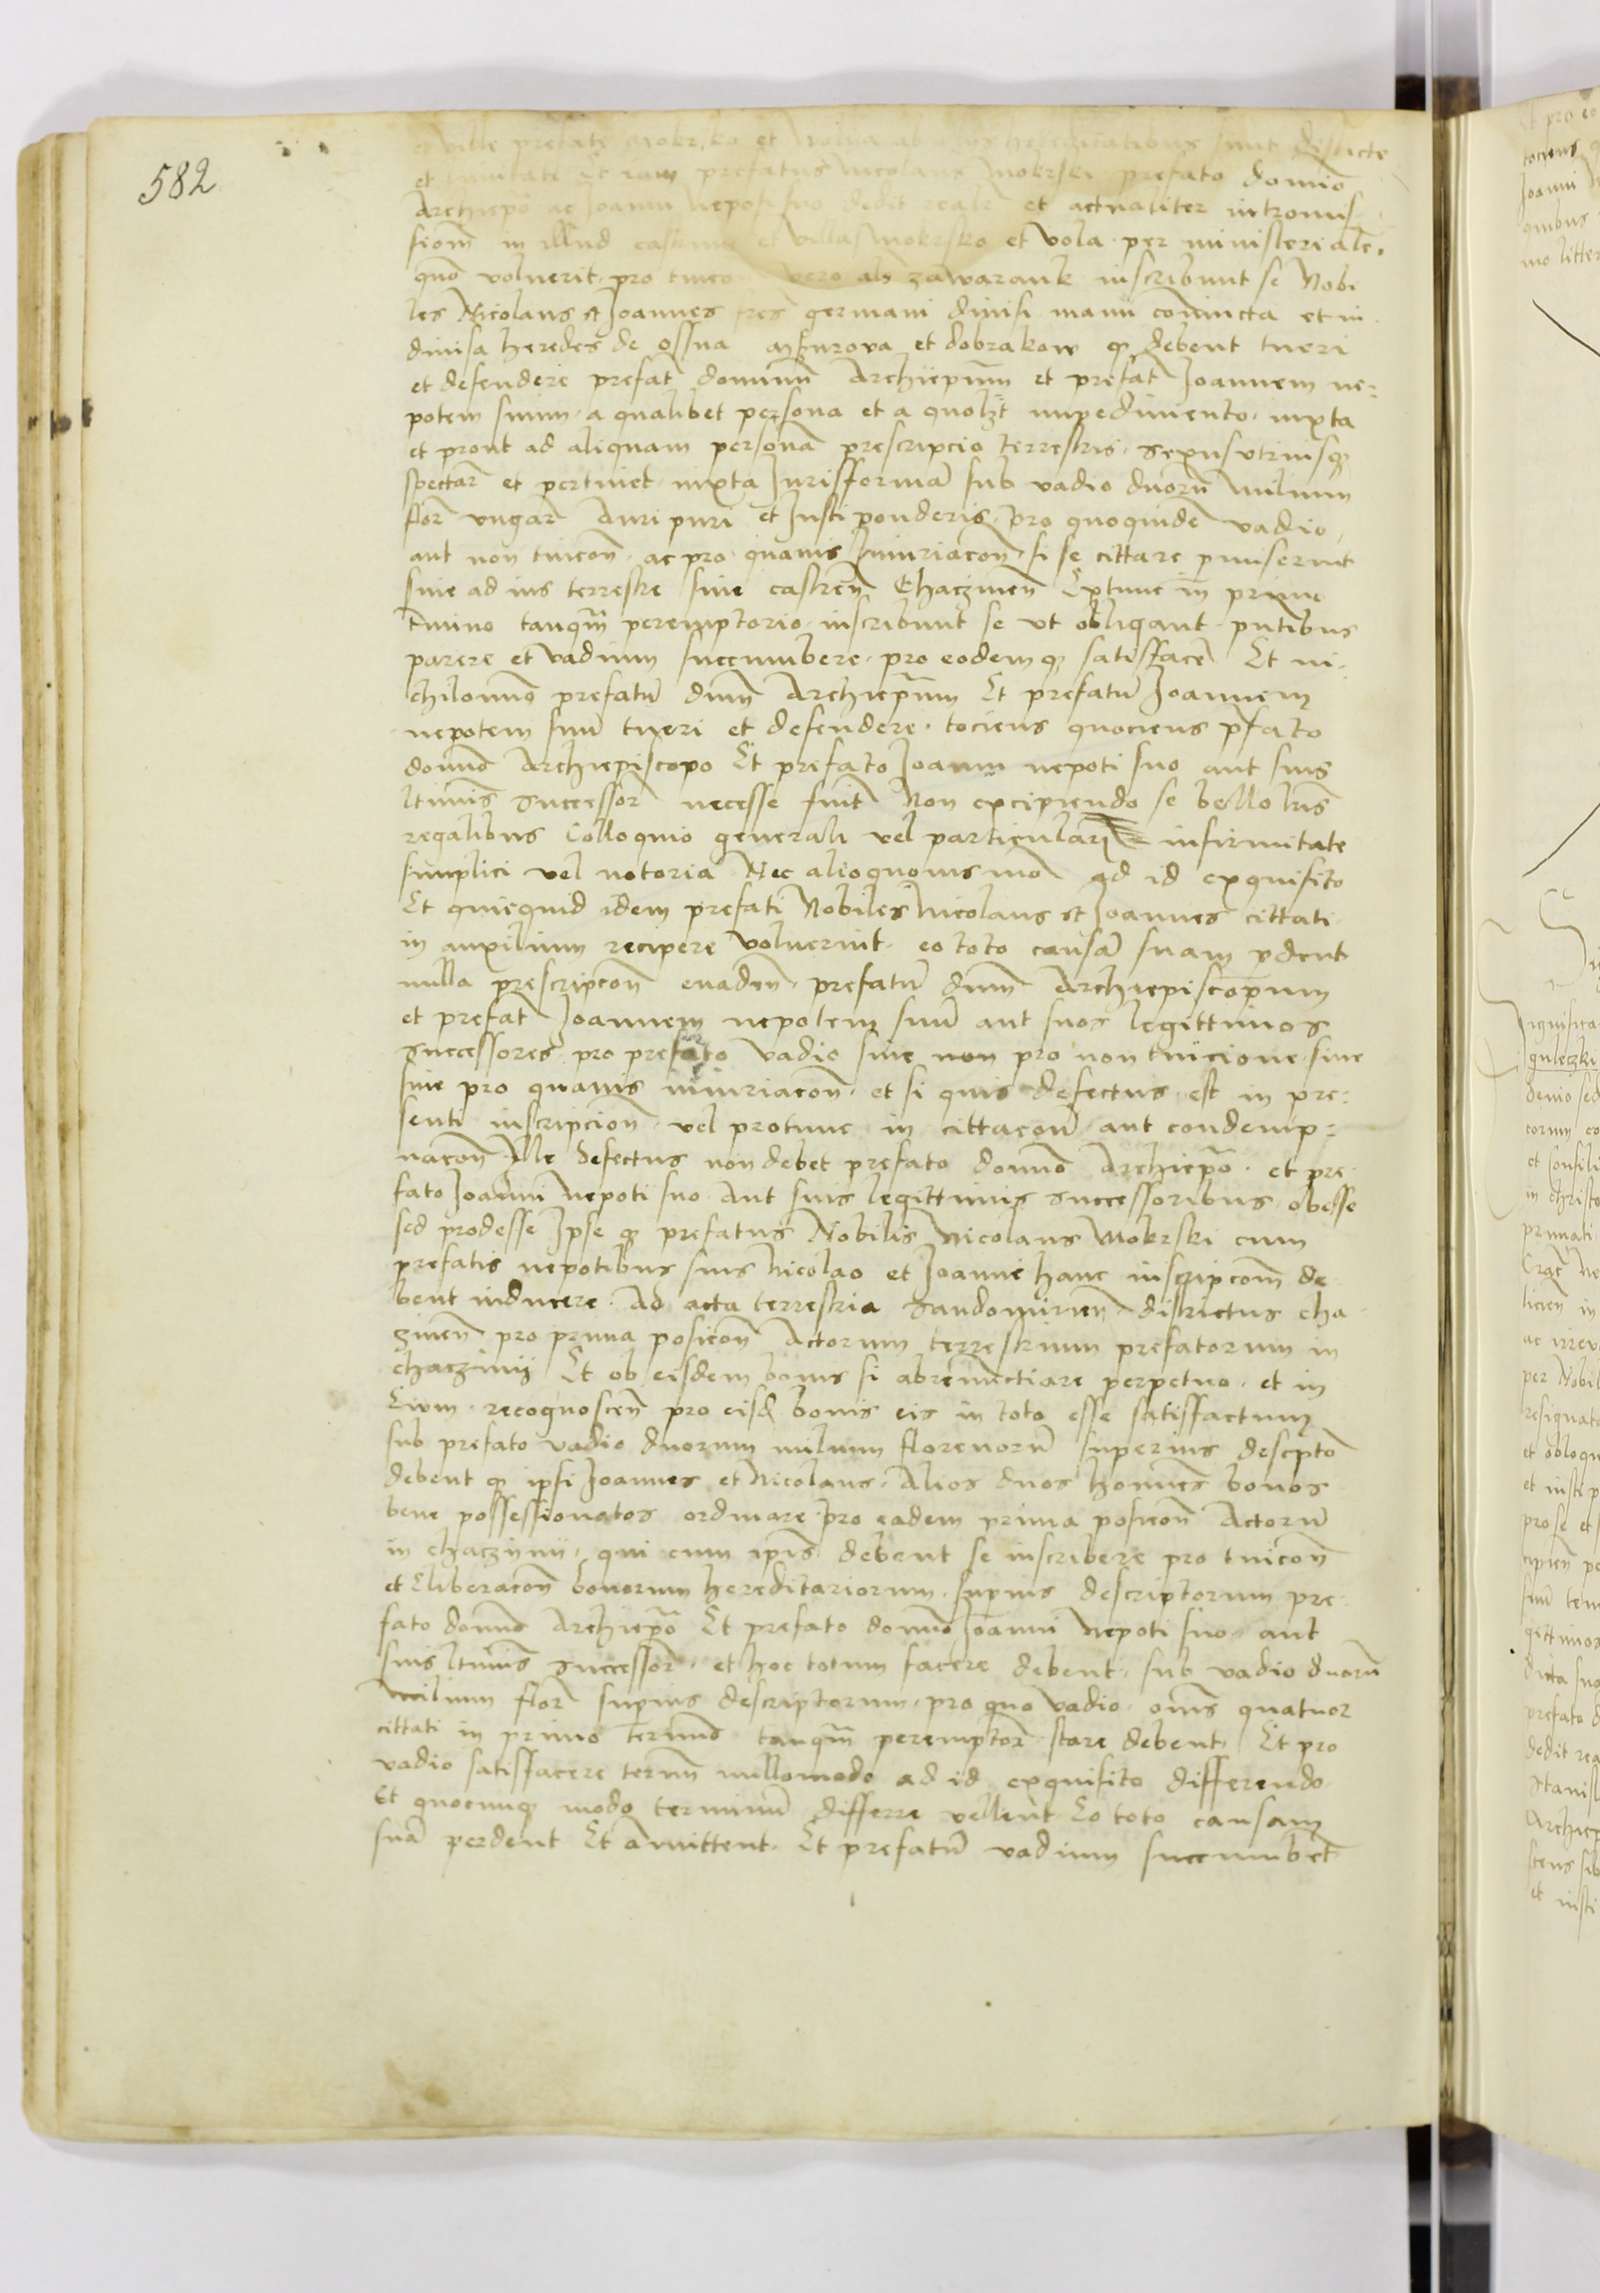 582
et ville prefate Mokrsko et Volya ab hereditatibus sunt distincte
et limitate Et iam prefatus Nicolaus Mokrski prefato domino
Archiepo ac Joanni nepoti suo dedit reale et actualiter intromis
sionem in illud castrum et villas Mokrsko et Vola per ministeriale
quem voluerit pro tuico vero als zawarank inscribunt se Nobi
les Nicolaus et Joannes fres germani divisi manu coniuncta et in
divisa heredes de Ossna et Dobrakow q debent tueri
et defendere prefat dominum Archiepum et prefat Joannem ne-
potem suum a qualibet persona et a quolzt impedimento iuxta
et prout ad aliquam persona prescripcio terrestris sexus utriusq
spectare et pertinet iuxta Juris formam sub vadio duorum milium
flor ungar Auri puri et Justi ponderis pro quoquidem vadio
aut non tuicone ac pro quavis Iniuriacone si se cittare pmiserint
sive ad ius terrestre sive castren Chaczinen Extunc in primo
tmino tanqm peremptorio inscribunt se ut obligant pntibus
parere et vadium succumbere pro eodem q satisfacere Et ni-
chilominus prefatum dnum Archiepum Et prefatum Joannem
nepotem suum tueri et defendere tociens quociens pfato
domino Archiepiscopo Et prefato Joanni nepoti suo aut suis
ltimis successor necesse fuit Non excipiendo se bello lris
regalibus Colloquio generali vel particulari infirmitate
simplici vel notoria Nec alioquovis modo ad id exquisito
Et quicquid idem prefati Nobiles Nicolaus et Joannes cittati
in auxilium recipere voluerint eo toto causam suam pdent
nulla prescripcon evaden prefatum dnum Archiepiscopum
et prefat Joannem nepotem suum aut suos legittimos
successores pro prefato vadio sive non pro non tuicione sive
sive pro quavis iniuriacone et si quis defectus est in pre-
senti inscripcione vel protunc in cittacone aut condemp-
nacone Ille defectus non debet prefato domino Archiepo et pre
fato Joanni Nepoti suo Aut suis legittimis successoribus obesse
sed prodesse Ipse q prefatus Nobilis Nicolaus Mokrski cum
prefatis nepotibus suis Nicolao et Joanne hanc inscripcom de
bent inducere Ad acta terrestria Sandomirien districtus cha
zinen pro prima posicone Actorum terrestrium prefatorum in
chaczinii Et ob eisdem bonis si abrenuctiare perpetuo et in
Evum recognoscen pro eisd bonis eis in toto esse satisfactum
sub prefato vadio duorum milium florenorum superius descpto
debent q ipsi Joannes et Nicolaus Alios duos homines bonos
bene possessionatos ordinare pro eadem prima posicone Actorum
in chaczinii qui cum ipis debent se inscribere pro tuicone
et Eliberacone bonorum hereditariorum supius descriptorum pre
fato domino Archiepo Et prefato domino Joanni Nepoti suo aut
suis ltimis successor et hoc totum facere debent sub vadio duorum
milium flor supius descriptorum pro quo vadio omnes quatuor
cittati in primo termino tanqm peremptor stare debent Et pro
vadio satisfacere termin nullomodo ad id exquisito differendo
Et quocumq modo terminum differre vellent Eo toto causam
suam perdent Et Amittent Et prefatum vadium succumbet